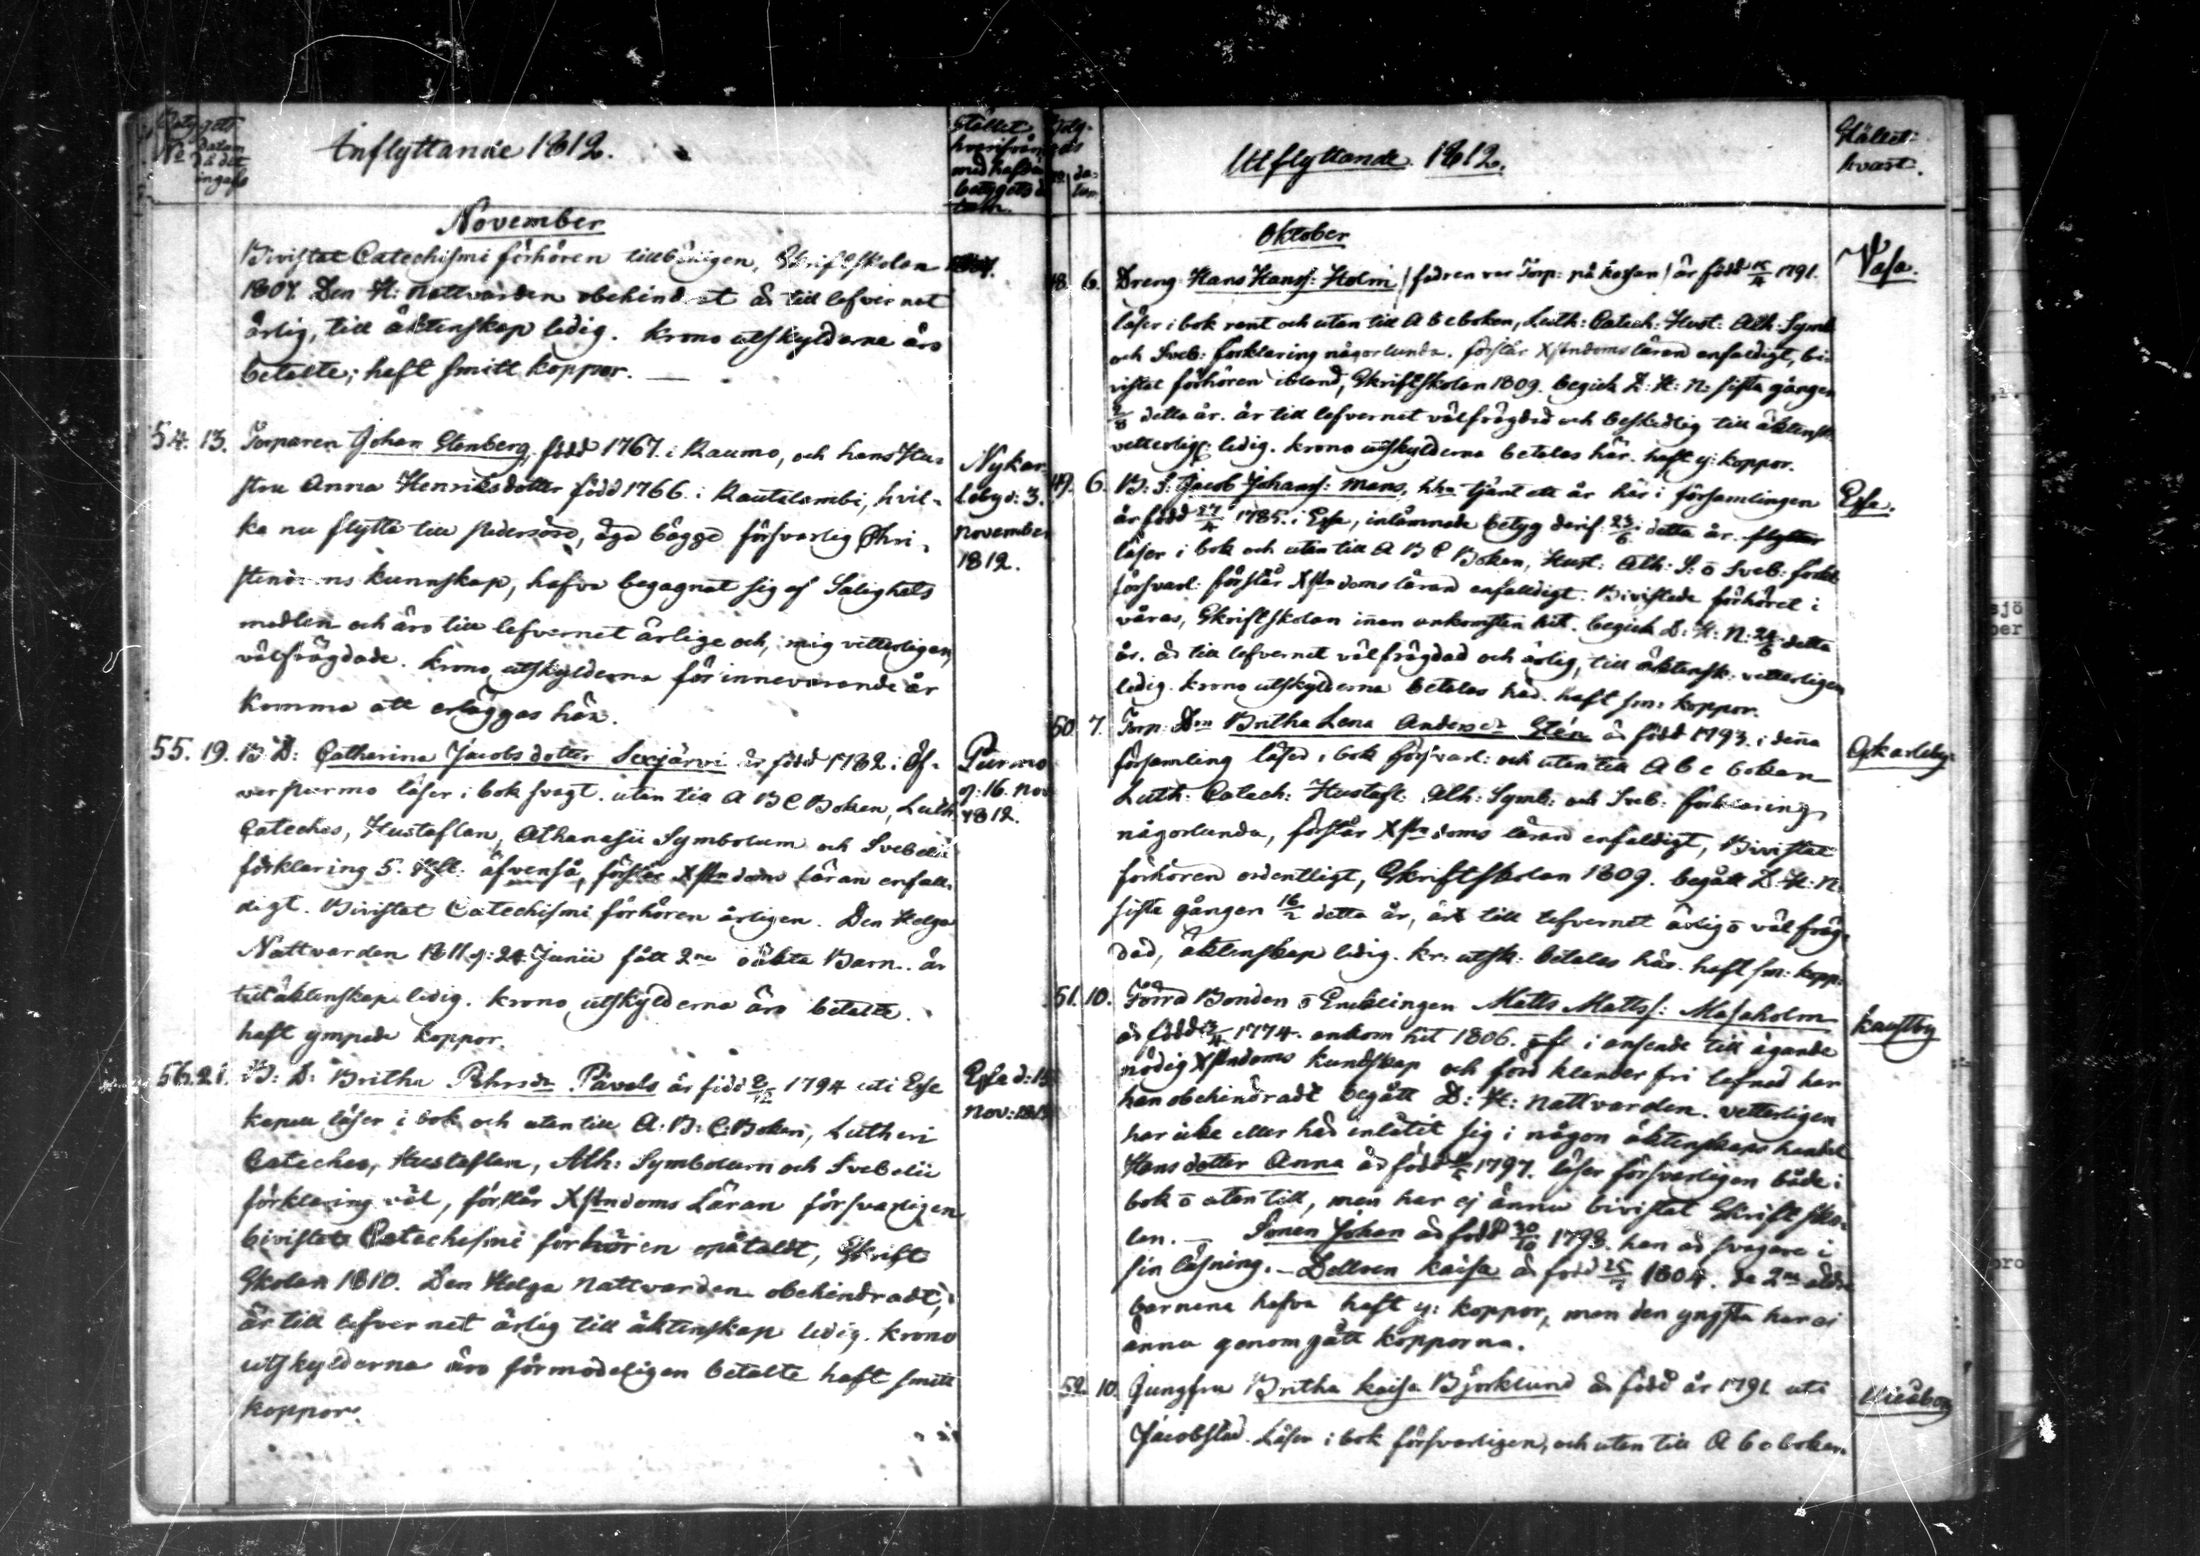 Betygets
No datum
då det
ingafs
Inflyttande 1812.
Stället
hvarifrån
med hafda
betygets da
tum.
November
Bivistat Catechismi förhören tillbörligen, Skriftskolan
1807. Den H: Nattvarden obehindrat är till lefvernet
ärlig, till äktenskap ledig. Krono utskylderna äro
betalte; haft smitt koppor.
54. 13. Torparen Johan Stenberg, född 1767. i Raumo, och hans Hu-
stru Anna Henriksdotter född 1766. i Rautalambi, hvil-
ka nu flytta till Pedersöre, äga bägge försvarlig Chri-
stendoms kunnskap, hafva begagnat sig af Salighets
medlen och äro till lefvernet ärlige och, mig vetterligen,
välfrägdade. Krono utskylderna för innevarande år
komma att erläggas här.
Nykar-
leby d: 3.
November
1812.
55. 19. B: D: Catharina Jacobs dotter Sexjärvi är född 1782. i Öf-
verpurmo läser i bok svagt. utan till A B C Boken, Luth:
Cateches, Hustaflan, Athanasii Symbolum och Svebelii
förklaring 5. äfvenså, förstår Xstndoms läran enfall-
digt. Bivistat Catechismi förhören årligen. Den Helga
Nattvarden 1811 d: 24 Junii fått 2ne oäkta Barn. är
till äktenskap ledig. Krono utskylderna äro betalte.
haft ympade koppor.
Purmo
d: 16. Nov
1812.
56. 21. B: D: Britha Pehrsdr Pävals är född 2/12 1794 uti Esse
kapell läser i bok och utan till A. B. C. Boken, Lutheri
Cateches, Hustaflan, Ath: Symbolum och Svebelii
förklaring väl, förstår Xstndoms Läran försvarligen
bivistat Catechismi förhören opåtaldt, Skrift
Skolan 1810. Den Helga Nattvarden obehindradt,
är till lefvernet ärlig till äktenskap ledig. Krono
utskylderna äro förmodeligen betalte haft smitt
koppor.
Esse d: 15
Nov: 1812
Betyg-
ets
No da-
tum
Utflyttande 1812.
Stället
hvart.
Oktober
48. 6. Dreng Hans Hanss: Holm / fadren var Torp: på / är född 15/4 1791.
läser i bok rent och utan till A b c boken, Luth: Catech: Hust: Ath: Symb
och Sveb: förklaring någorlunda. förstår Xstndoms läran enfaldigt, bi-
vistat förhören ibland, Skriftskolan 1809. begick D: H: N: sista gången
detta år. är till lefvernet välfrägdad och beskedlig till äktensk:
vetterlig: ledig. Krono utskylderna betalas här. haft y: koppor.
Vasa.
49. 6. B: S: Jacob Johanss: Mans, har tjänt ett år här i församlingen
är född 27/4 1785. i Esse, inlämnade betyg derif: detta år. flyttar
läser i bok och utan till A B C Boken, Hust: Ath: S: o Sveb: förkl:
försvarl: förstår Xstn doms läran enfalldigt. Bivistade förhöret i
våras, Skriftskolan innan ankomsten hit. begick D: H: N: 24/6 detta
år. är till lefvernet välfrägdad och ärlig, till äktensk: vetterligen
ledig. Krono utskylderna betalas här. haft sm: koppor.
Esse.
50. 7. Torp: Dn Britha Lena Andersdr Stén är född 1793. i denna
församling läser i bok försvarl: och utan till A b c boken
Luth: Catech: Hustafl: Ath: Symb: och Sveb: förklaring
någorlunda, förstår Xstn doms läran enfaldigt, Bivistat
förhören ordentligt, Skriftskolan 1809. begått D: H: N:
sista gången 16/2 detta år, är till lefvernet ärlig o välfräg-
dad, äktenskap ledig. kr: utsk: betalas här. haft sm: kopp:
Gkarleby.
51. 10. Förra Bonden o Enklingen Matts Mattss: Masaholm
är född 1774. ankom hit 1806. i anseende till ägande
nödig Xstndoms kundskap och förd klander fri lefnad har
han obehindradt begått D: H: Nattvarden. vetterligen
har icke eller här inlåtit sig i någon äktenskaps handel
Hans dotter Anna är född 1797. läser försvarligen både i
bok o utan till, men har ej ännu bivistat Skriftsko-
lan. — Sonen Johan är född 30/10 1798. han är svagare i
sin läsning. — Dottren Kaisa är född 25/7 1804. de 2ne äldre
barnena hafva haft y: koppor, men den yngsta har ej
ännu genomgått kopporna.
Kaustby
52. 10. Jungfru Britha Kaisa Björklund är född år 1791 uti
Jacobstad. Läser i bok försvarligen, och utan till A b c boken
Uleåborg